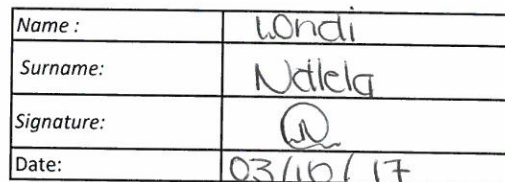 Name : Londi
Surname: Ndlela
Signature:
Date: 03/10/17